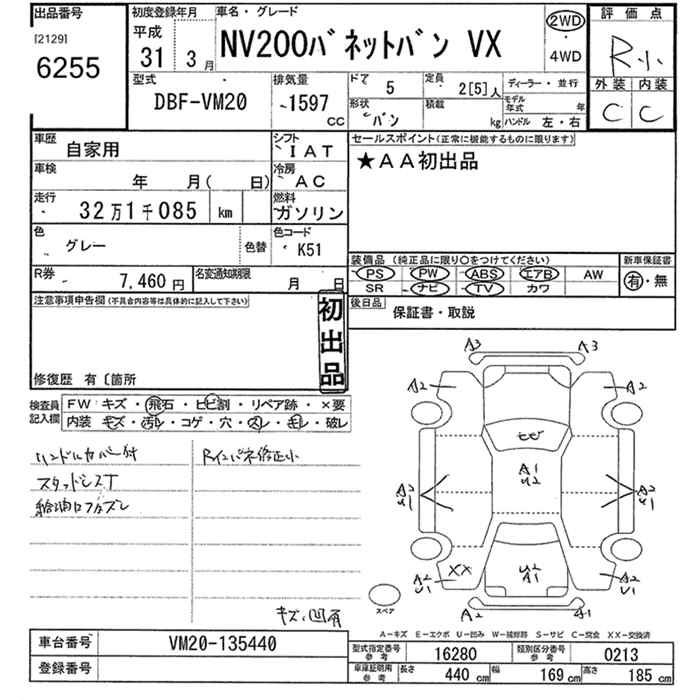 出品番号
[2129]
6255
初度登録年月
平成
31 年 3 月
車名・グレード
NV200バネットバン VX
2WD
・
4WD
評価点
R小
外装 内装
C C
型式
DBF-VM20
排気量
1597
CC
ドア
5
定員
2[5]人
ディーラー・並行
形状
バン
積載
kg
モデル年式
年
ハンドル 左・右
車歴
自家用
シフト
IAT
セールスポイント(正常に機能するものに限ります)
★AA初出品
車検
年 月( 日)
冷房
AC
走行
32万1千085 km
燃料
ガソリン
色
グレー
色替
色コード
K51
装備品 (純正品に限り○をつけてください)
新車保証書
PS PW ABS エアB AW
有・無
SR ナビ TV カワ
R券
7,460 円
名変通知期限
月 日
後日品
保証書・取説
注意事項申告欄(不具合内容等は具体的に記入して下さい)
初出品
修復歴 有〔箇所
検査員記入欄
FW キズ・飛石・ヒビ割・リペア跡・×要
内装 キズ・汚レ・コゲ・穴・スレ・キレ・破レ
ハンドルカバー付
Rインパネ修正小
スタッドレスT
給油口フタズレ
キズ、凹有
A3 A3
A2 A2
ヒビ
A1
U2
A2
U1
A2
U1
XX
A2
U1
U2
A1
A2
U1
スペア
A2 A1
A-キズ E-エクボ U-凹み W-補修跡 S-サビ C-腐食 XX-交換済
車台番号
VM20-135440
登録番号
型式指定番号
参考
16280
類別区分番号
参考
0213
車庫証明用
参考
長さ
440 cm
幅
169 cm
高さ
185 cm